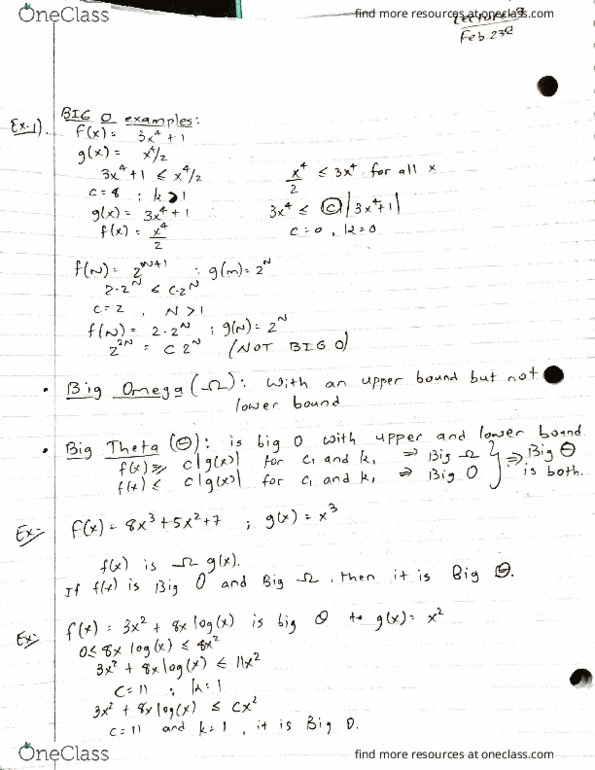 OneClass
find more resources at oneclass.com
Feb. 23
Ex.1)
BIG O examples:
f(x) = 3x⁴ + 1
g(x) = x⁴/2
3x⁴ + 1 ≤ x⁴/2
c = 8 ; k > 1
g(x) = 3x⁴ + 1
f(x) = x⁴/2
x⁴/2 ≤ 3x⁴ for all x
3x⁴ ≤ C |3x⁴+1|
c = 0, k = 0
f(N) = 2^(N+1) ; g(n) = 2^N
2·2^N ≤ C·2^N
c = 2, N > 1
f(N) = 2·2^N ; g(N) = 2^N
2^(2N) = C 2^N (NOT BIG O)
• Big Omega (Ω): With an upper bound but not
lower bound
• Big Theta (Θ): is big O with upper and lower bound
f(x) ≥ c|g(x)| for c, and k, ⇒ Big Ω } ⇒ Big Θ
f(x) ≤ c|g(x)| for c, and k, ⇒ Big O } is both.
Ex:- f(x) = 8x³ + 5x² + 7 ; g(x) = x³
f(x) is Ω g(x).
If f(x) is Big O and Big Ω, then it is Big Θ.
Ex:- f(x) = 3x² + 8x log(x) is big O to g(x) = x²
0 ≤ 8x log(x) ≤ 8x²
3x² + 8x log(x) ≤ 11x²
C = 11 ; k = 1
3x² + 8x log(x) ≤ Cx²
c = 11 and k = 1, it is Big O.
OneClass
find more resources at oneclass.com